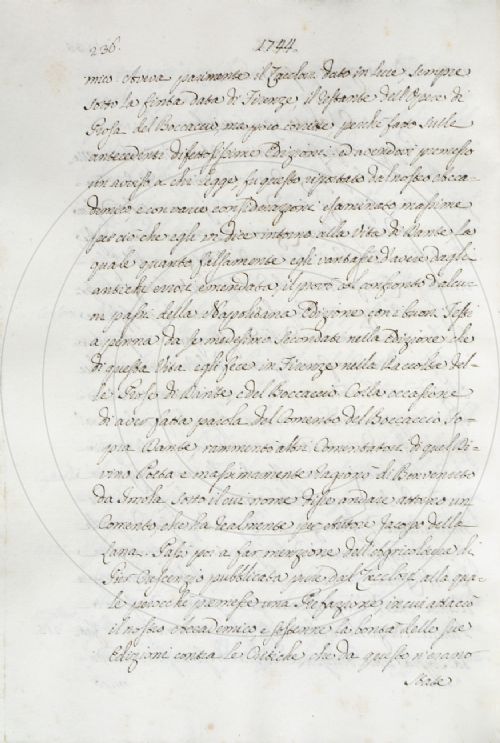 236. 1744.
mico. Aveva parimente il Zaccloni dato in luce sempre
sotto la finta data di Firenze il restante dell'Opere di
Prosa del Boccaccio, ma poco corrette perchè fatte sulle
antecedenti difettosissime Edizioni; ed avendovi premesso
un avviso a chi legge, fu questo riportato dal nostro Acca-
demico e con varie considerazioni esaminato massime
per ciò che egli vi dice intorno alla Vita di Dante, la
quale quanto falsamente egli vantasse d'aver dagli
antichi errori emendata il portò col confronto d'alcu-
ni passi della Napolitana Edizione con i buoni Testi
a penna da se medesimo secondati nella Edizione che
di questa Vita egli fece in Firenze nella Raccolta del-
le Prose di Dante, e del Boccaccio. Colla occasione
di aver fatta parola del Comento del Boccaccio so-
pra Dante rammentò altri Comentatori di quel Di-
vino Poeta e massimamente ragionò di Benvenuto
da Imola sotto il cui nome disse andare attorno un
Comento che ha realmente per autore Jacopo della
Lana. Passò poi a far menzione dell'Agricoltura di
Pier Crescenzio pubblicata pure dal alla qua-
le perocchè premesse una Prefazione in cui attaccò
il nostro Accademico e sostenne la bontà delle sue
Edizioni contra le Critiche che da questo n'erano
state